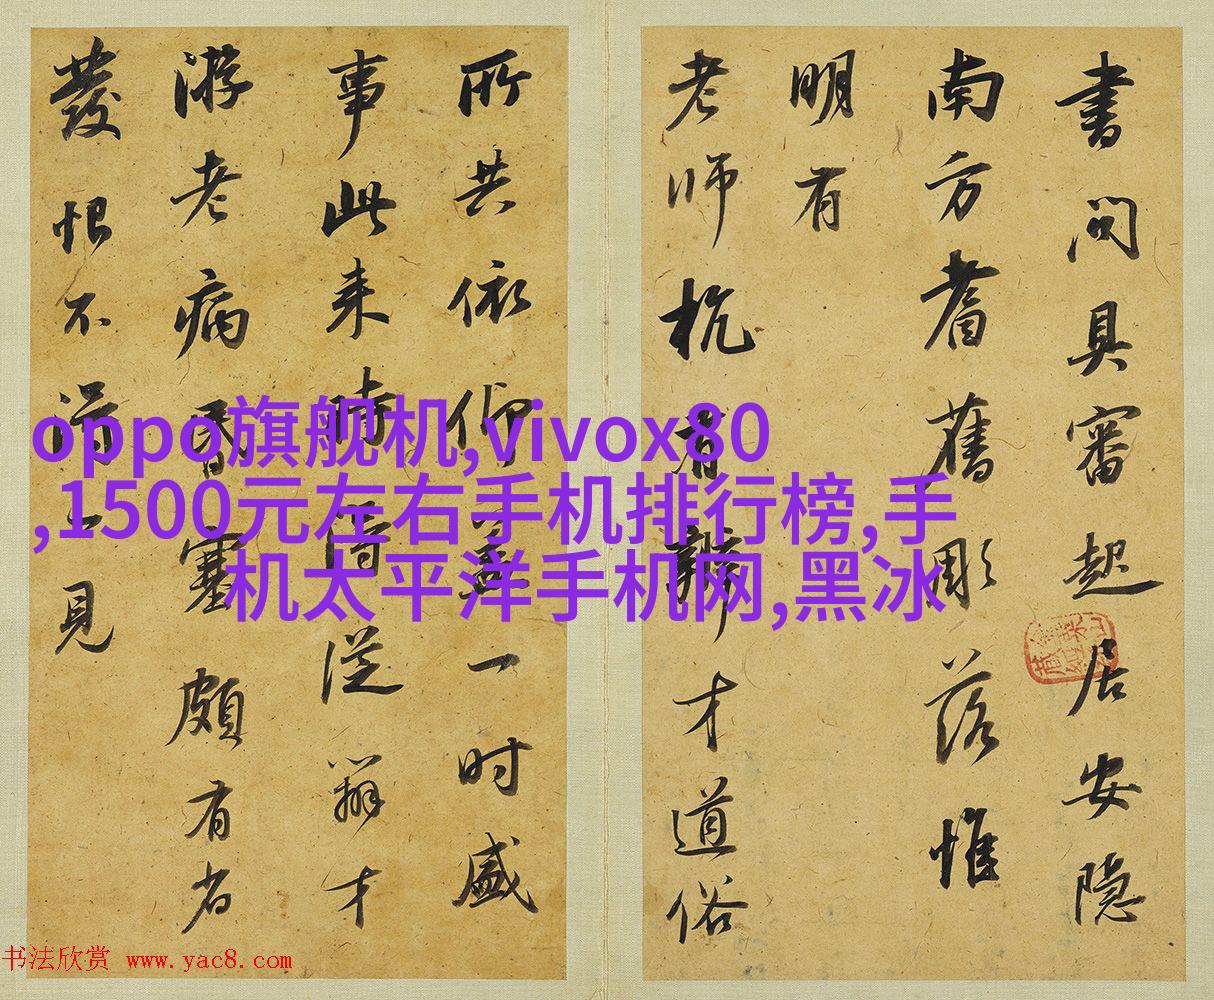 書問具審起居安隱
南方耆舊彫落惟
明有
老师杭有辯才道俗
所共依仰蓋一时盛
事此来時得從辯才
游老病昏塞頗有省
發恨不得一見
oppo旗舰机,vivox80
,1500元左右手机排行榜,手
机太平洋手机网,黑冰
书法欣赏 www.yac8.com